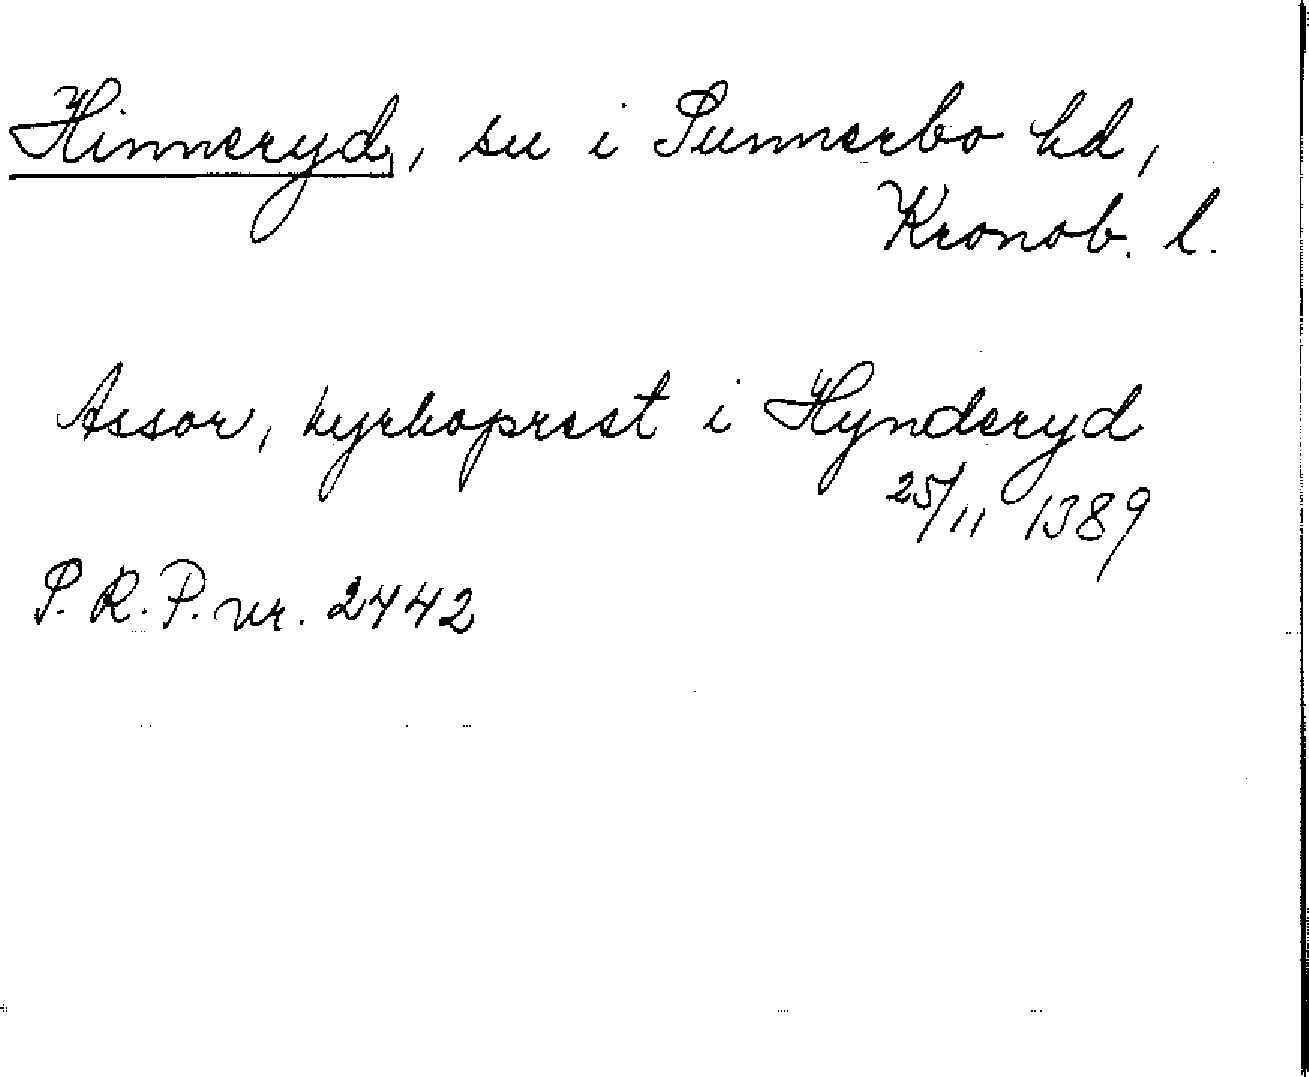 Hinneryd, sn i Sunnerbo hd,
Kronob. l.
Assor, kyrkoprest i Hynderyd
25/11 1389
S. R. P. nr. 2442